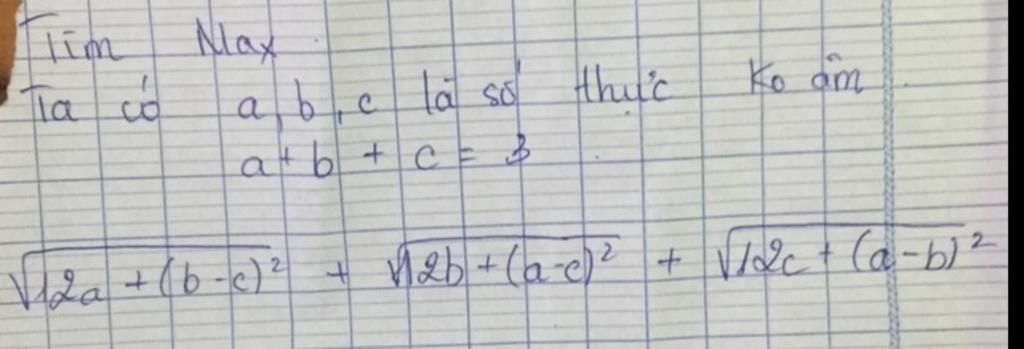 Tìm Max
Ta có a, b, c là số thực ko âm
a + b + c = 3
√12a + (b-c)² + √12b + (a-c)² + √12c + (a-b)²